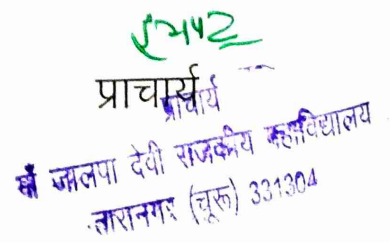 प्राचार्य
प्राचार्य
माँ जालपा देवी राजकीय महाविद्यालय
तारानगर (चूरू) 331304